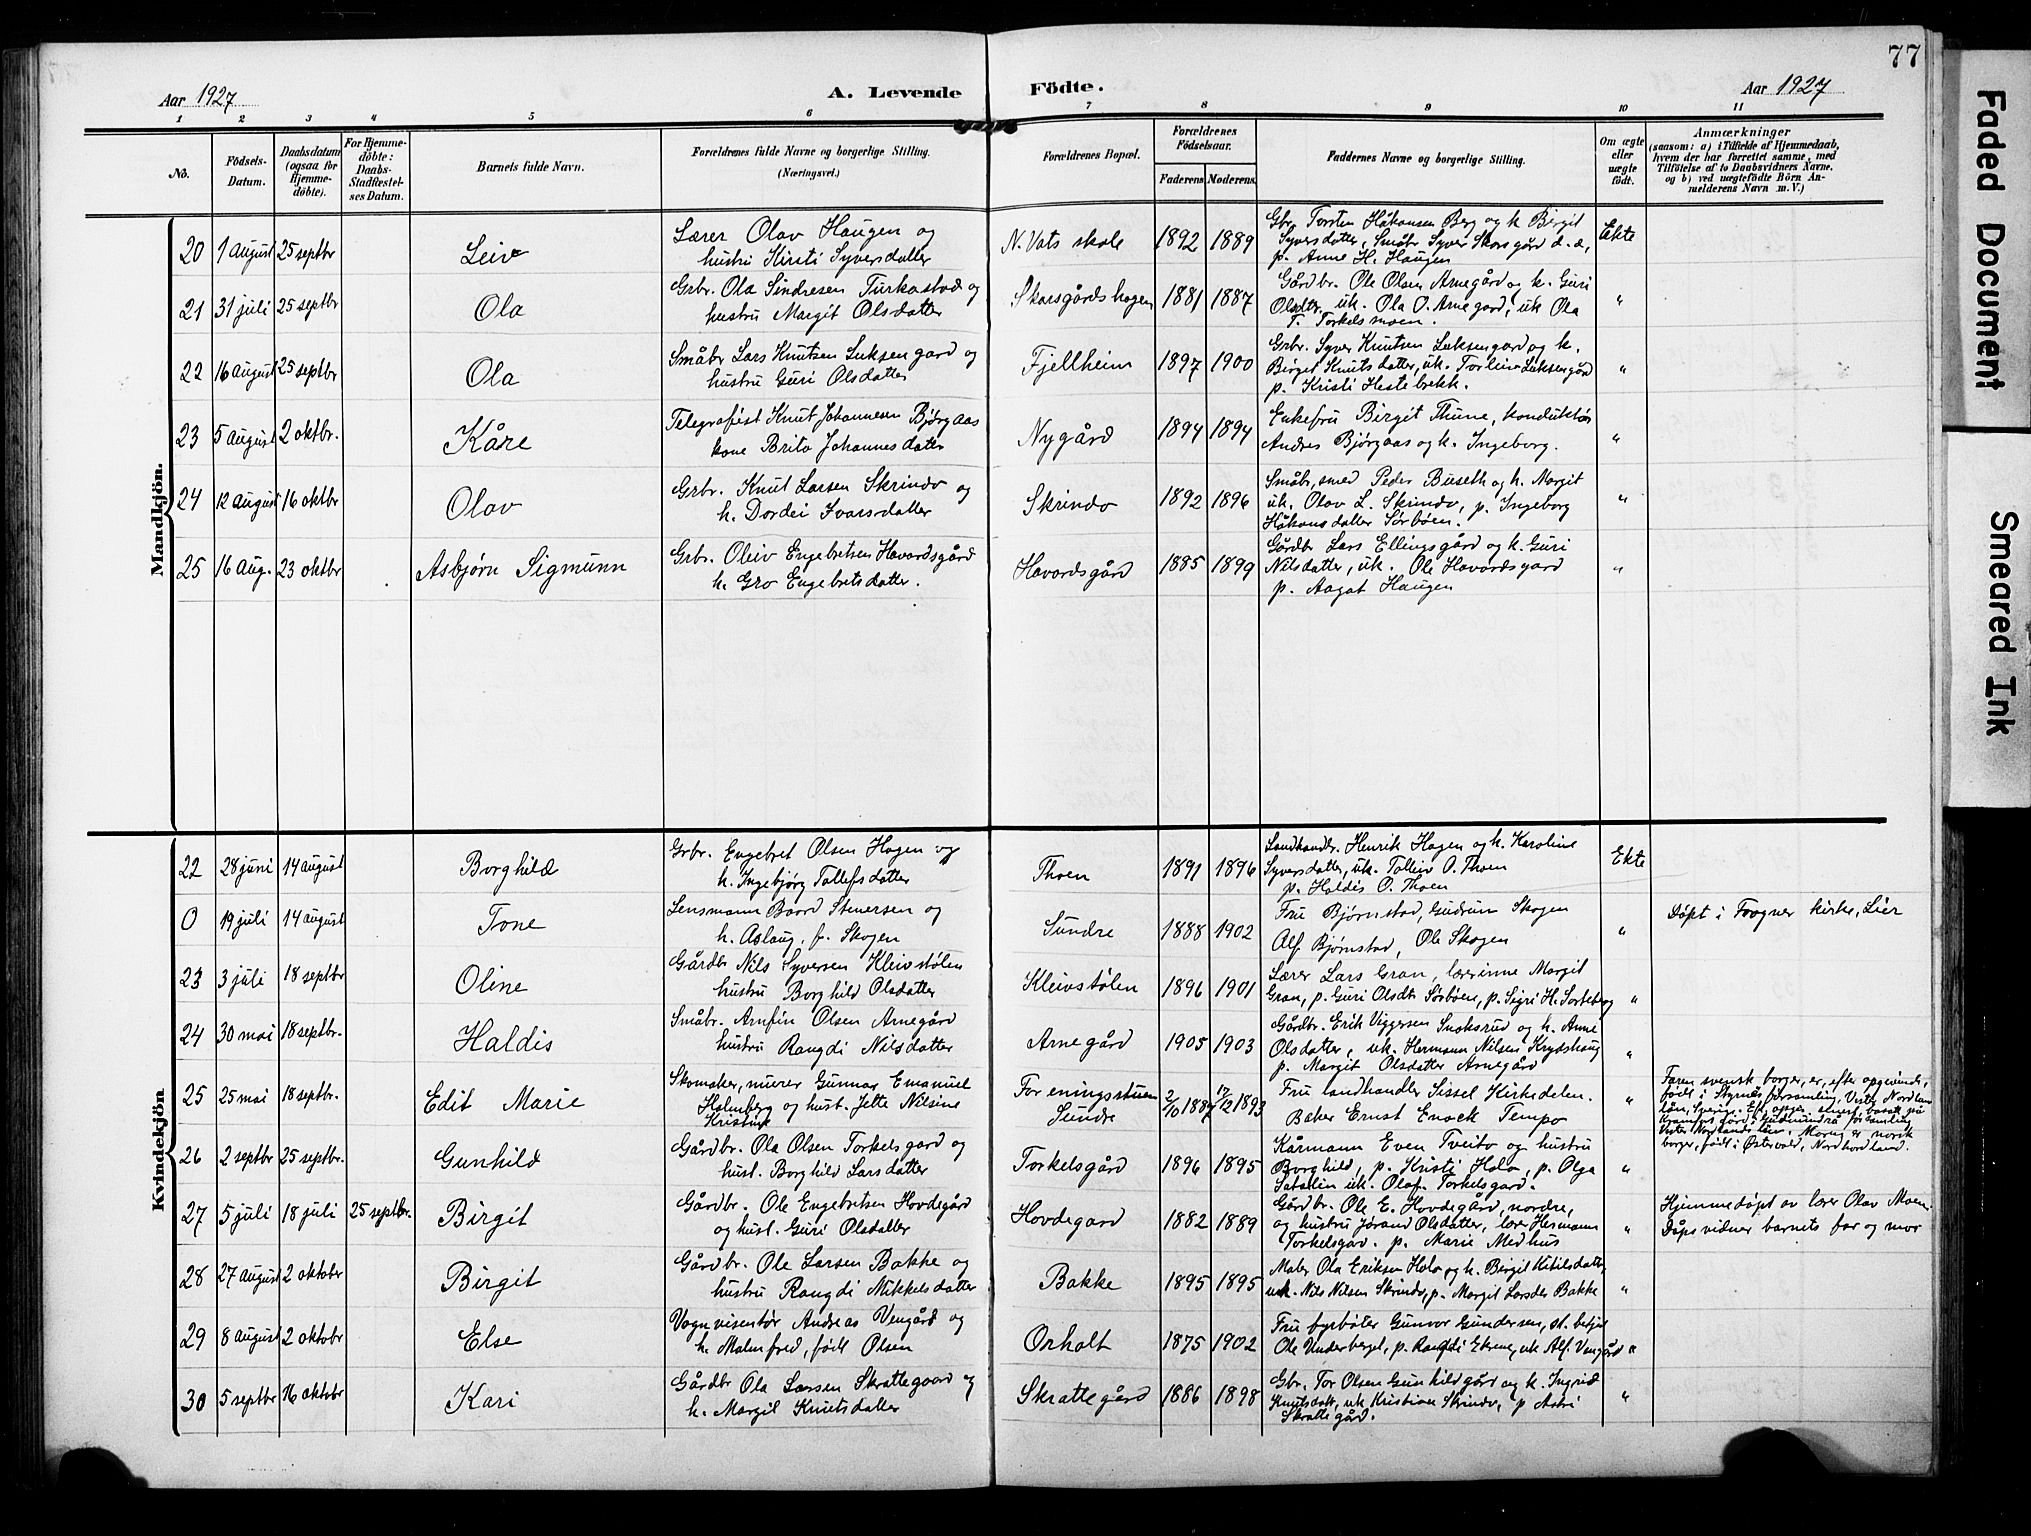 77
Aar 1927
A. Levende Födte.
Aar 1927
1 2 3 4 5 6 7 8 9 10 11
No.
Födsels-
Datum.
Daabsdatum
(ogsaa for
Hjemme-
döbte).
For Hjemme-
döbte:
Daabs-
Stadfæstel-
ses Datum.
Barnets fulde Navn.
Forældrenes fulde Navne og borgerlige Stilling.
(Næringsvei.)
Forældrenes Bopæl.
Forældrenes
Födselsaar.
Faderens Moderens.
Faddernes Navne og borgerlige Stilling.
Om ægte
eller
uægte
födt.
Anmærkninger
(saasom: a) i Tilfælde af Hjemmedaab,
hvem der har forrettet samme, med
Tilföielse af to Daabsvidners Navne.
og b) ved uægtefödte Börn An-
melderens Navn m. V.)
Mandkjön.
20 1 August 25 septbr Leiv
Lærer Olav Haugen og
hustru Kirsti Syversdatter
N. Vats skole 1892 1889
Gbr. Torsten Håkonsen Berg og h. Birgit
Syversdatter, Småbr Syver Skarsgård d. æ,
p. Anne H. Haugen
Ekte
21 31 juli 25 septbr Ola
Grbr. Ola Sindresen Turkastad og
hustru Margit Olsdatter
Skarsgårdshagen 1881 1887
Gårdbr. Ole Olsen Arnegård og h. Guri
Olsdtr. uk. Ola O. Arnegard, uk Ola
T. Torkelsmoen.
"
22 16 August 25 septbr Ola
Småbr Lars Knutsen Luksengard og
hustru Guri Olsdatter
Fjellheim 1897 1900
Grbr. Syver Knutsen Luksengard og h.
Birgit Knutsdatter, uk. Torleiv Luksengård
p. Kristi Hestebrekk.
"
23 5 August 2 oktbr. Kåre
Telegrafist Knut Johannesen Bjørgaas
kone Brita Johannesdatter
Nygård 1894 1894
Enkefru Birgit Thune, konduktør
Andres Bjørgaas og h. Ingeborg.
"
24 12 August 16 oktbr Olav
Grbr. Knut Larsen Skrindo og
h. Dordei Ivarsdatter
Skrindo 1892 1896
Småbr, smed Peder Buseth og h. Margit
uk. Olav L. Skrindo, p. Ingeborg
Håkonsdatter Sørbøen.
"
25 16 Aug. 23 oktbr Asbjørn Sigmunn
Grbr. Oleiv Engebretsen Havardsgård
h. Gro Engebretsdatter.
Havardsgård 1885 1899
Gårdbr Lars Ellingsgård og h. Guri
Nilsdatter, uk. Ole Havardsgard
p. Aagot Haugen
"
Kvindekjön
22 28 juni 14 august Borghild
Grbr. Engebret Olsen Hagen og
h. Ingebjørg Tollefsdatter
Thoen 1891 1896
Landhandlr. Henrik Hagen og h. Karoline
Syversdatter, uk. Tolleiv O. Thoen
p. Haldis O. Thoen
Ekte
0 19 juli 14 august Tone
Lensmann Baard Stenersen og
h. Aslaug, f. Skogen
Sundre 1888 1902
Fru Bjørnstad, Gudrun Skogen
Alf Bjørnstad, Ole Skogen
"
Døpt i Frogner kirke, Lier
23 3 juli 18 septbr Oline
Gårdbr Nils Syversen Kleivstølen
hustru Borghild Olsdatter
Kleivstølen 1896 1901
Lærer Lars Gran, lærerinne Margit
Gran, p. Guri Olsdtr Sørbøen, p. Sigri H. Sorteberg
"
24 30 mai 18 septbr. Haldis
Småbr. Arnfin Olsen Arnegård
hustru Rangdi Nilsdatter
Arnegård 1905 1903
Gårdbr. Erik Viggersen Snoksrud og h. Anne
Olsdatter, uk. Hermann Nilsen Krydshaug
p. Margit Olsdatter Arnegård
"
25 25 mai 18 septbr. Edit Marie
Skomaker, murer Gunnar Emanuel
Holmberg og hust. Jette Nilsine
Kristine
Foreningsstuen
Sundre
2/10 1887 17/12 1893
Fru landhandler Sissel Kirkedelen.
Baker Ernst Enock Tempo
"
Faren svensk borger, er, efter opgivende,
født i Styrnäs församling, Vester Norrlan
län, Sverige. Eft. opgav. senest bosatt på
gård i Gudmundrå församling
Vester Norlands län. Moren er norsk
borger, født i Østervold, Nordhordland.
26 2 septbr 25 septbr. Gunhild
Gårdbr. Ola Olsen Torkelsgard og
hust. Borghild Larsdatter
Torkelsgård 1896 1895
Kårmann Even Tveito og hustru
Borghild, p. Kristi Holo, p. Olga
Satalin uk. Olaf Torkelsgard.
"
27 5 juli 18 juli 25 septbr. Birgit
Gårdbr. Ole Engebretsen Hovdegård
og hust. Guri Olsdatter
Hovdegard 1882 1889
Gårdbr. Ole E. Hovdegård, nordre,
og hustru Jørand Olsdatter, lærer Hermann
Torkelsgard. p. Marie Medhus
"
Hjemmedøpt av lærer Olav Moen.
Dåpsvidner barnets far og mor
28 27 August 2 oktober Birgit
Gårdbr. Ole Larsen Bakke og
hustru Rangdi Mikkelsdatter
Bakke 1895 1895
Maler Ola Eriksen Holo og h. Birgit Kittilsdatter,
uk. Nils Nilsen Skrindo, p. Margit Larsdtr Bakke
"
29 8 August 2 oktobr Else
Vognvisentør Andreas Vengård og
h. Malmfred, født Olsen
Orholt 1875 1902
Fru fyrbøter Gunvor Gundersen, st. betjt
Ole Underberget, p. Rangdi Ekrene, uk Alf. Vengård
"
30 5 septbr 16 oktobr Kari
Gårdbr Ola Larsen Skrattegaard og
h. Margit Knutsdatter
Skrattegård 1886 1898
Gbr. Tor Olsen Gunhildgård og h. Ingrid
Knutsdatt, uk Kristian Skrindo, p Astri
Skrattegård.
"
Faded Document
Smeared Ink